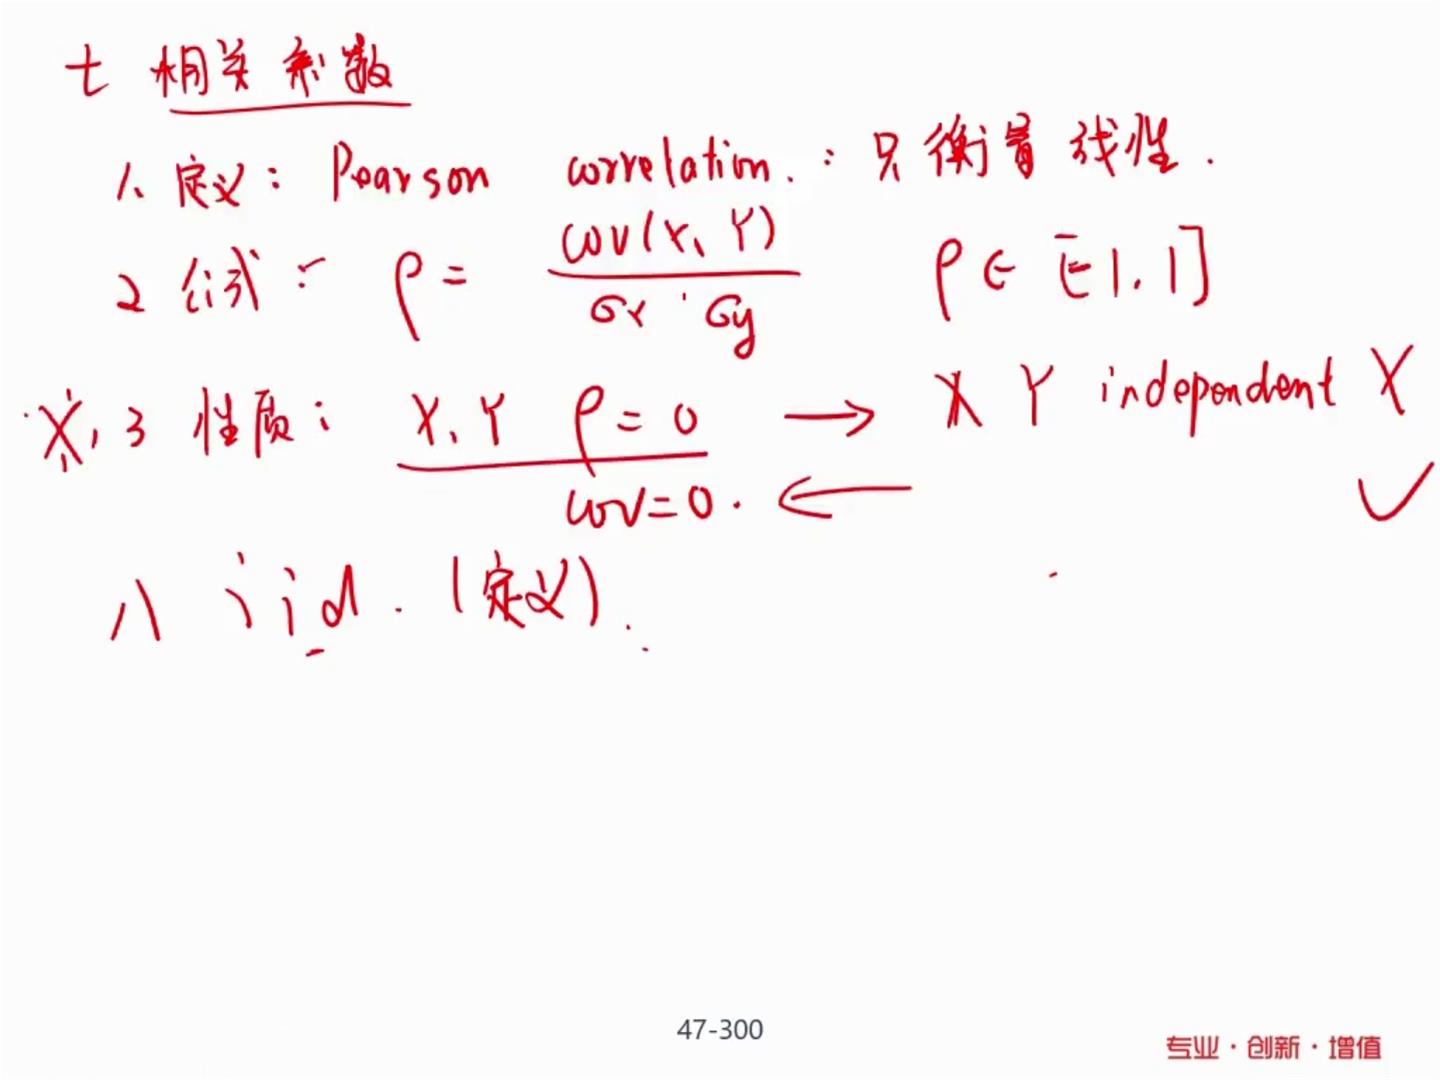 七 相关系数
1、定义: Pearson correlation. : 只衡量线性.
2 公式: ρ = cov(X, Y) / σx · σy ρ ∈ [-1, 1]
※, 3 性质: X, Y ρ = 0 → X Y independent X
cov = 0. ← ✓
八 iid. (定义).
47-300
专业·创新·增值